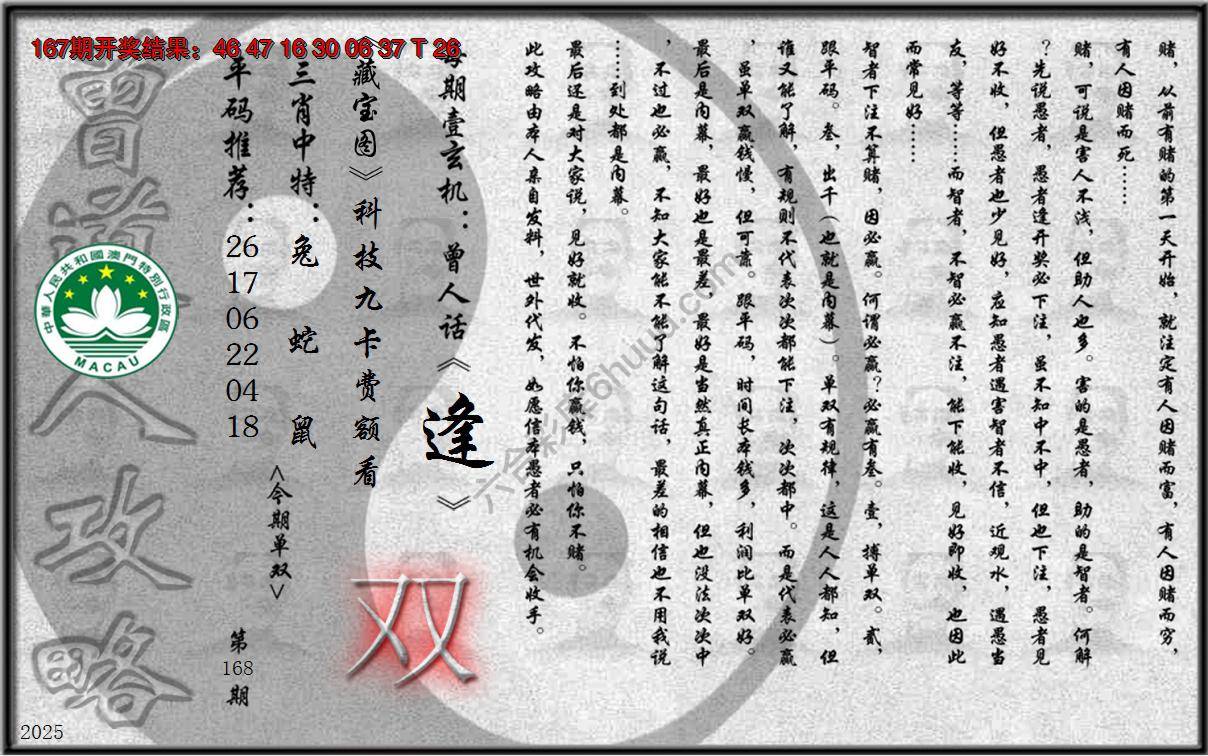 167期开奖结果：46 47 16 30 06 37 T 26
赌，从前有赌的第一天开始，就注定有人因赌而富，有人因赌而穷，
有人因赌而死……
赌，可说是害人不浅，但助人也多。害的是愚者，助的是智者。何解
？先说愚者，愚者逢开奖必下注，虽不知中不中，但也下注，愚者见
好不收，但愚者也少见好，应知愚者遇害智者不信，近观水，遇愚当
友，等等……而智者，不智必赢不注，能下能收，见好即收，也因此
而常见好……
智者下注不算赌，因必赢。何谓必赢？必赢有叁。壹，搏单双。贰，
跟平码。叁，出千（也就是内幕）。单双有规律，这是人人都知，但
谁又能了解，有规则不代表次次都能下注，次次都中。而是代表必赢
，虽单双赢钱慢，但可靠。跟平码，时间长本钱多，利润比单双好。
最后是内幕，最好也是最差，最好是当然真正内幕，但也没法次次中
，不过也必赢，不知大家能不能了解这句话，最差的相信也不用我说
……到处都是内幕。
最后还是对大家说，见好就收。不怕你赢钱，只怕你不赌。
此攻略由本人亲自发料，世外代发，如愿信本愚者必有机会收手。
每期壹玄机：曾人话《逢》
《藏宝图》科技九卡费额看
三肖中特：兔 蛇 鼠
<今期单双>
双
平码推荐：
26
17
06
22
04
18
第
168
期
曾道人攻略
中華人民共和國澳門特別行政區
MACAU
六合彩库66huuu.com
2025